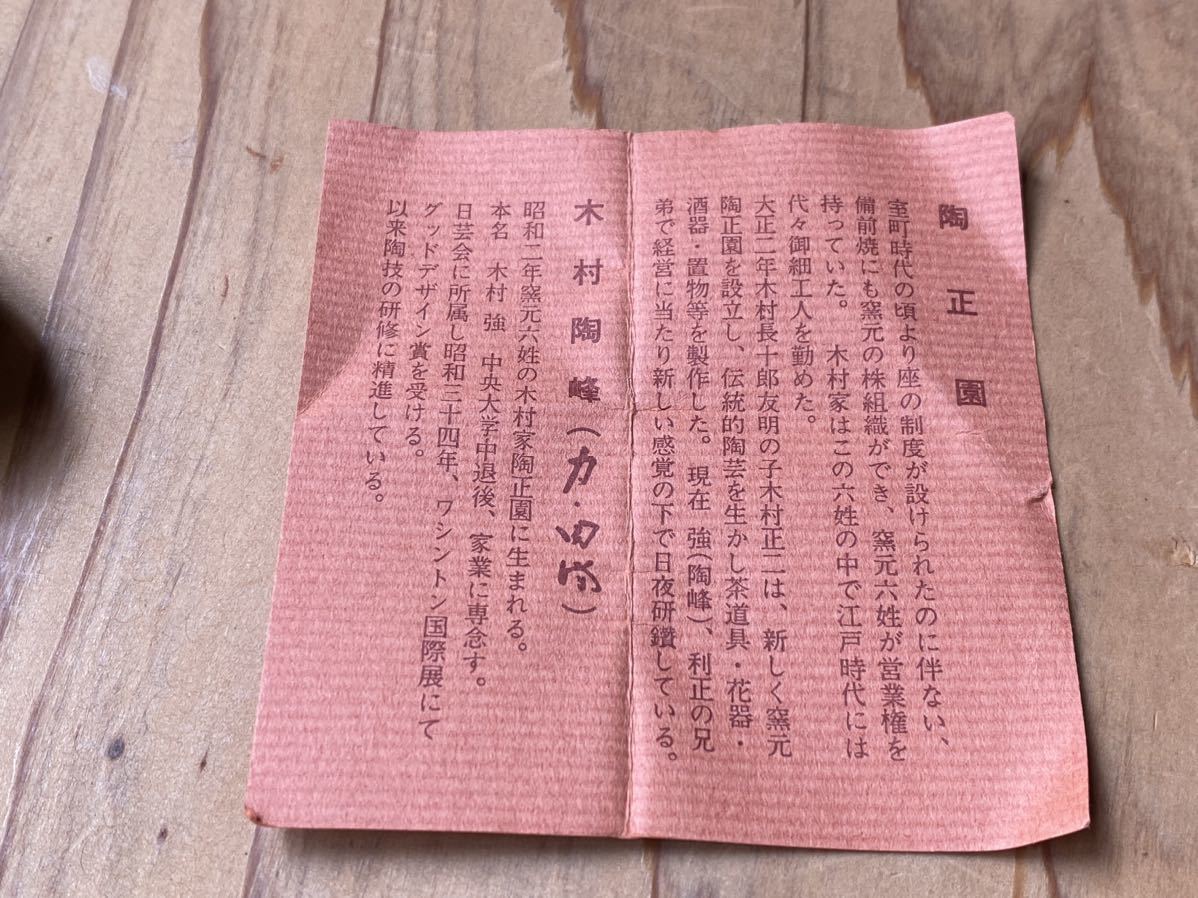 陶正園
室町時代の頃より座の制度が設けられたのに伴ない、
備前焼にも窯元の株組織ができ、窯元六姓が営業権を
持っていた。　木村家はこの六姓の中で江戸時代には
代々御細工人を勤めた。
大正二年木村長十郎友明の子木村正二は、新しく窯元
陶正園を設立し、伝統的陶芸を生かし茶道具・花器・
酒器・置物等を製作した。現在　強(陶峰)、利正の兄
弟で経営に当たり新しい感覚の下で日夜研鑽している。
木村陶峰（
昭和二年窯元六姓の木村家陶正園に生まれる。
本名　木村　強　中央大学中退後、家業に専念す。
日芸会に所属し昭和三十四年、ワシントン国際展にて
グッドデザイン賞を受ける。
以来陶技の研修に精進している。